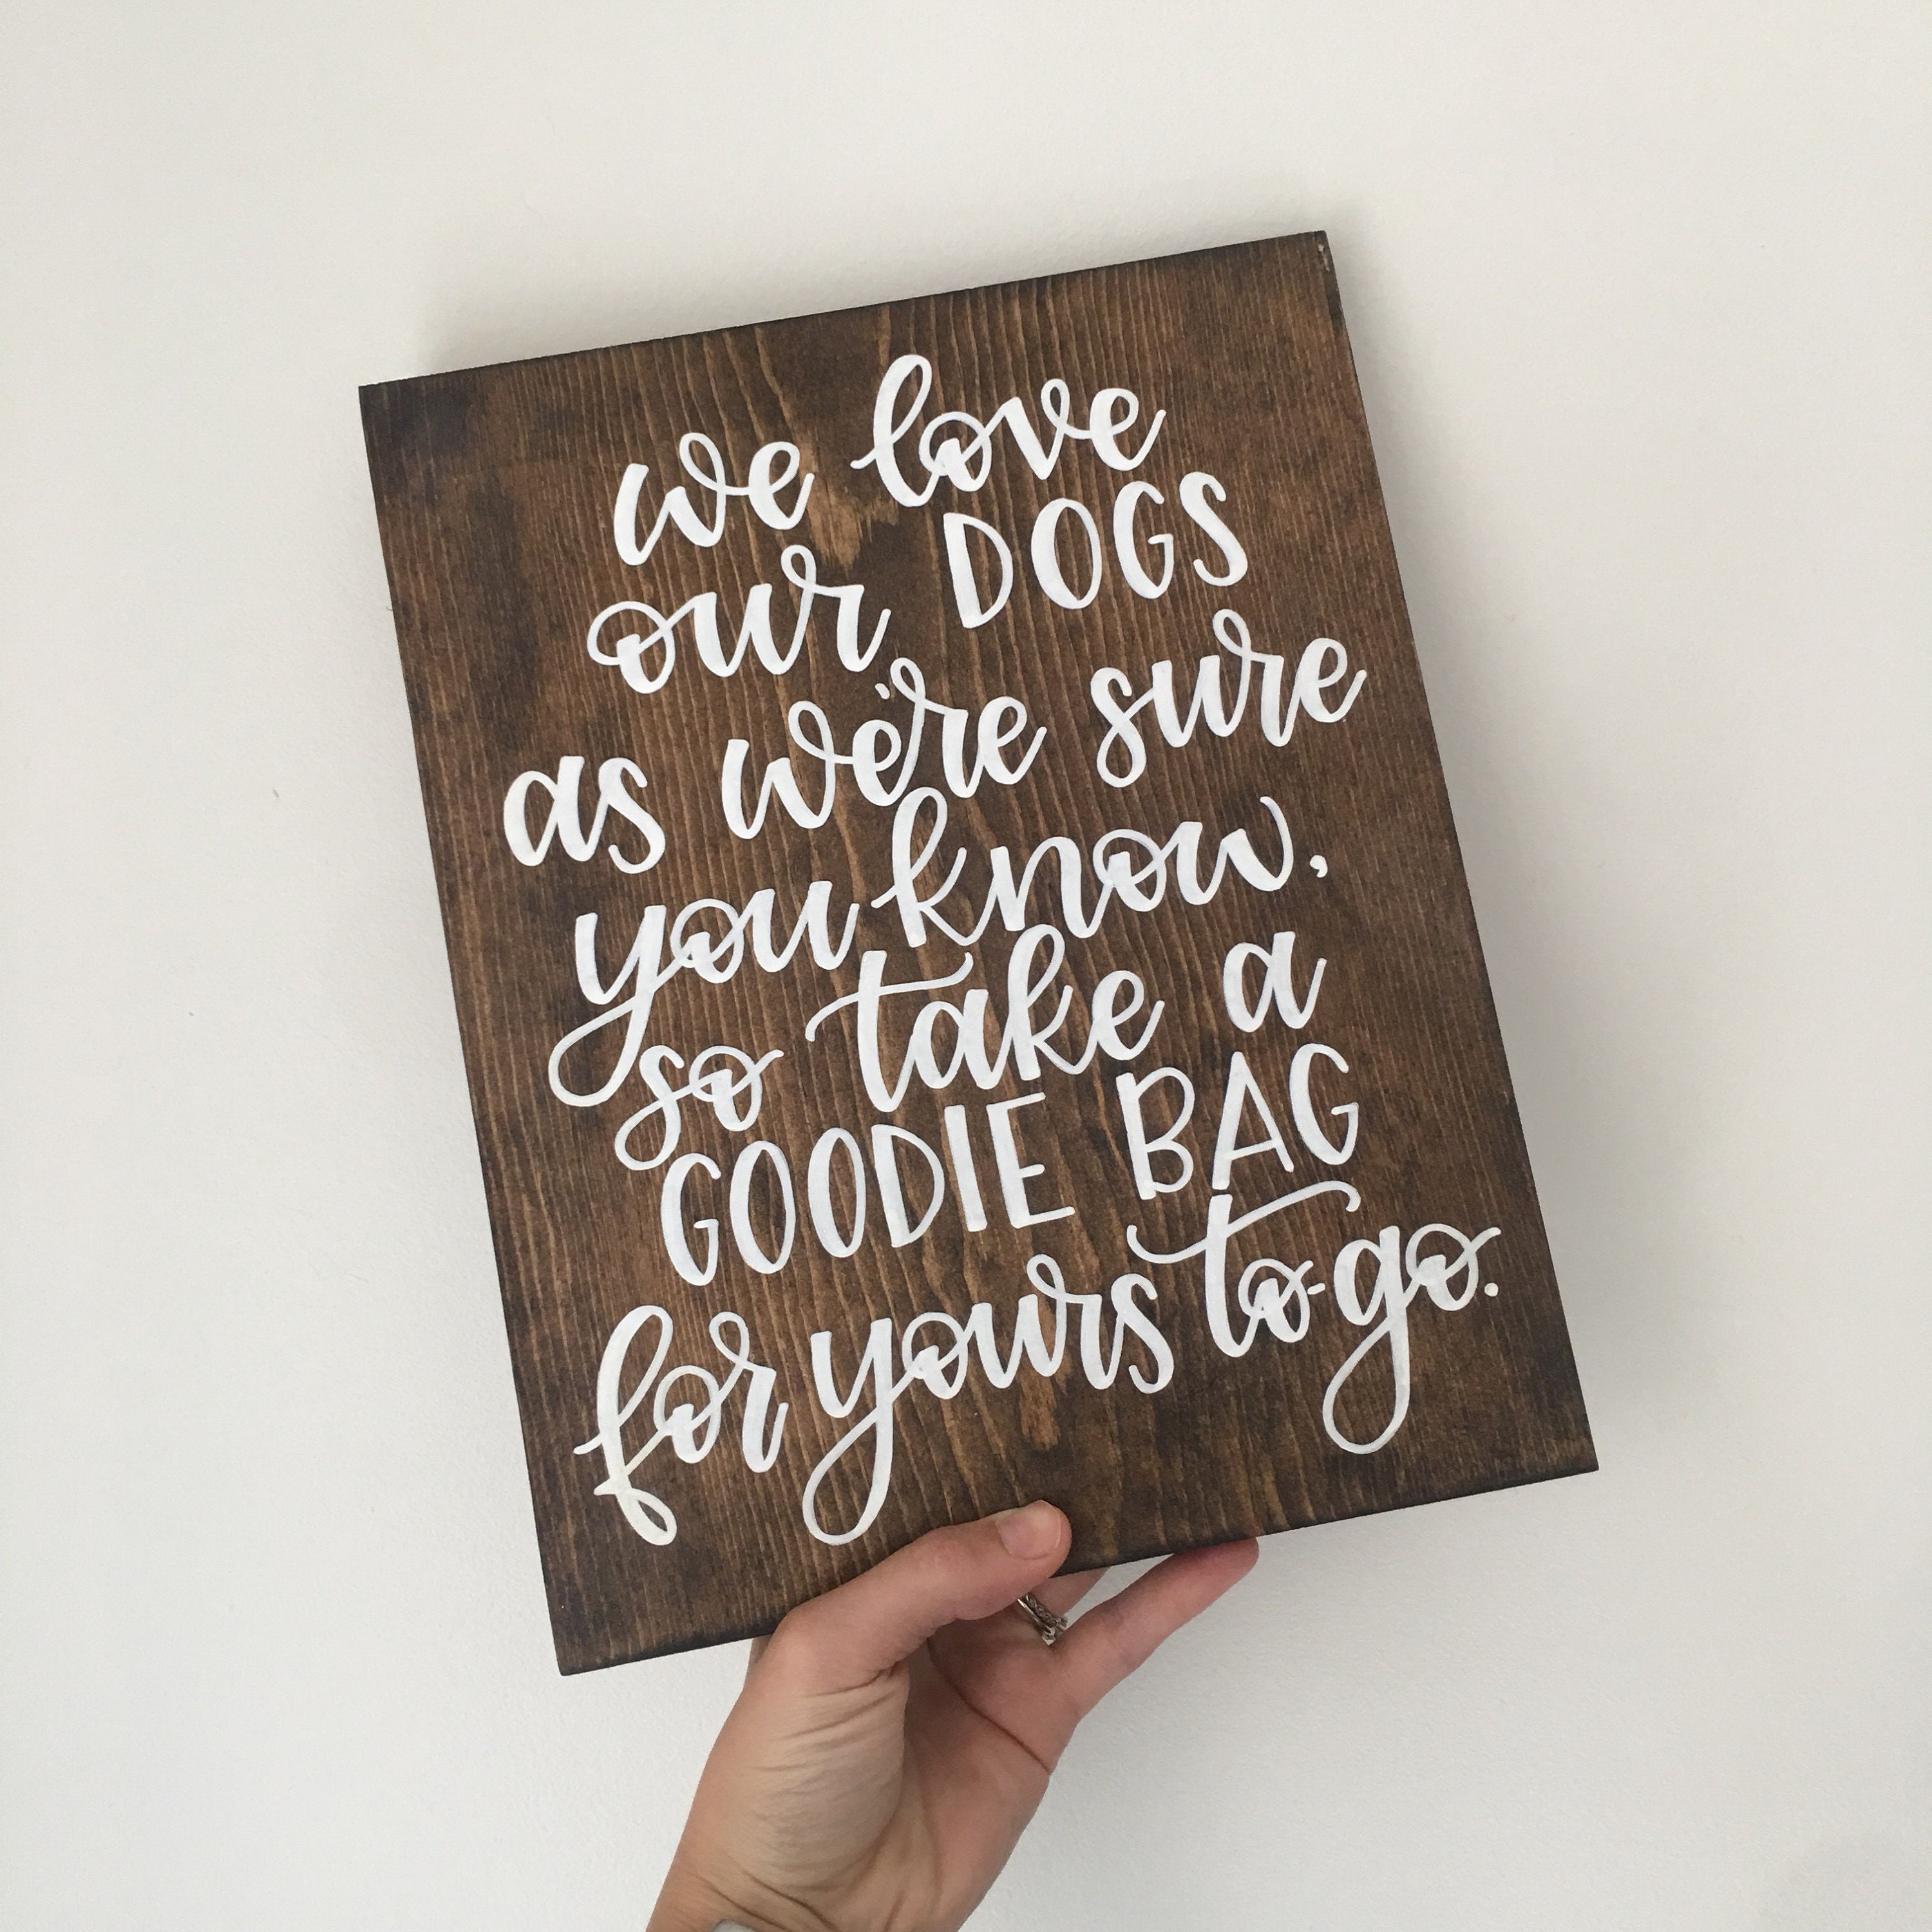 we love
our DOGS
as we're sure
you know,
so take a
GOODIE BAG
for yours to-go.